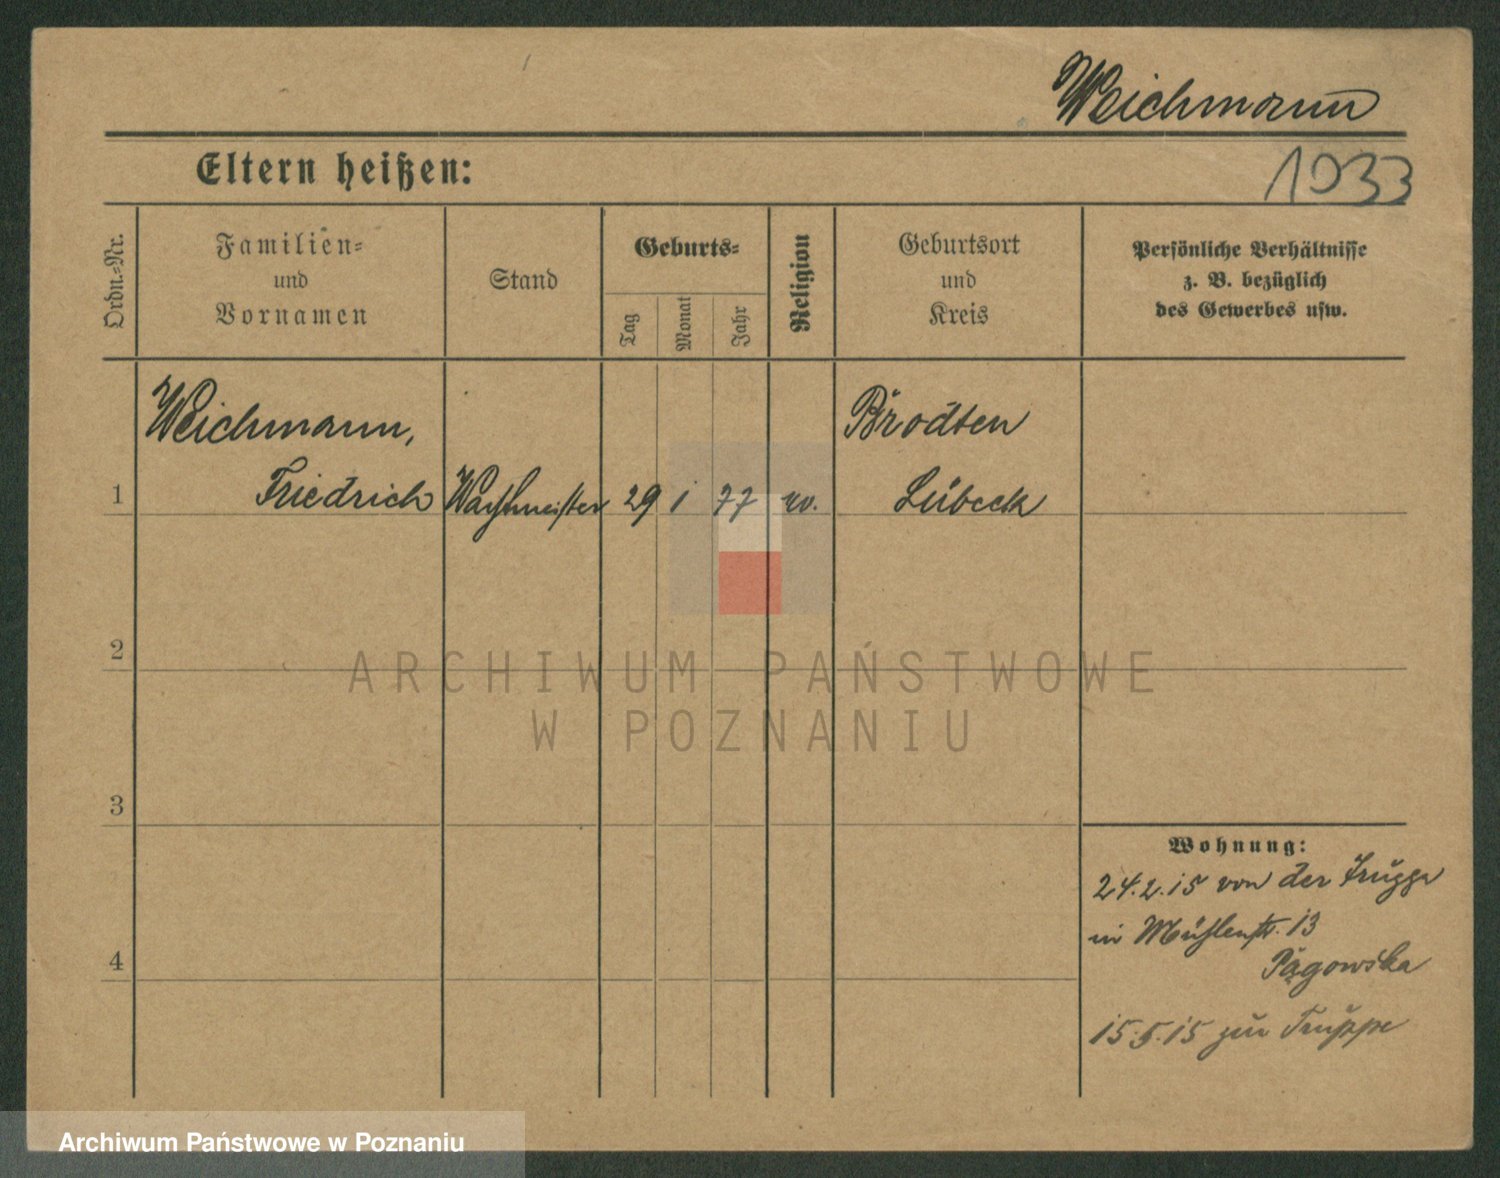 Weichmann
Eltern heißen:
1033
Ordn.-Nr.
Familien-
und
Vornamen
Stand
Geburts-
Tag
Monat
Jahr
Religion
Geburtsort
und
Kreis
Persönliche Verhältnisse
z. B. bezüglich
des Gewerbes usw.
Weichmann,
Friedrich
1
Wachtmeister
29
1
77
ev.
Brodten
Lübeck
2
3
4
Wohnung:
24.2.15 von der Truppe
in Mühlenstr. 13
Pągowska
15.5.15 zur Truppe
ARCHIWUM PAŃSTWOWE
W POZNANIU
Archiwum Państwowe w Poznaniu